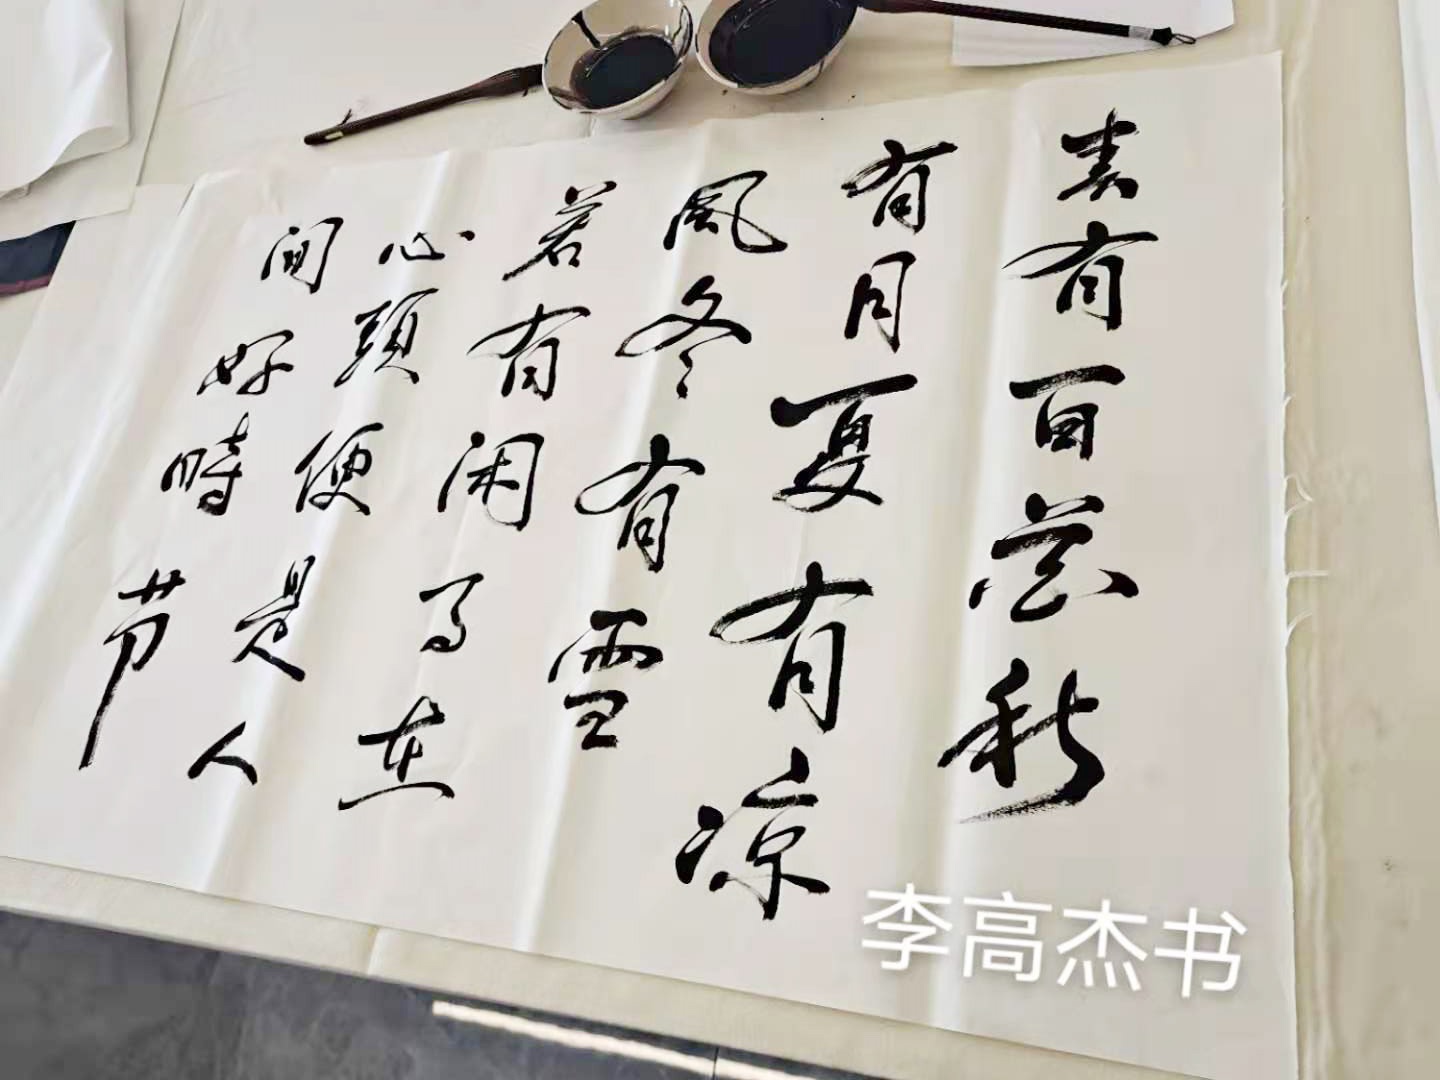 春有百花秋
有月夏有凉
风冬有雪
若有闲事在
心頭便是人
间好時节
李高杰书